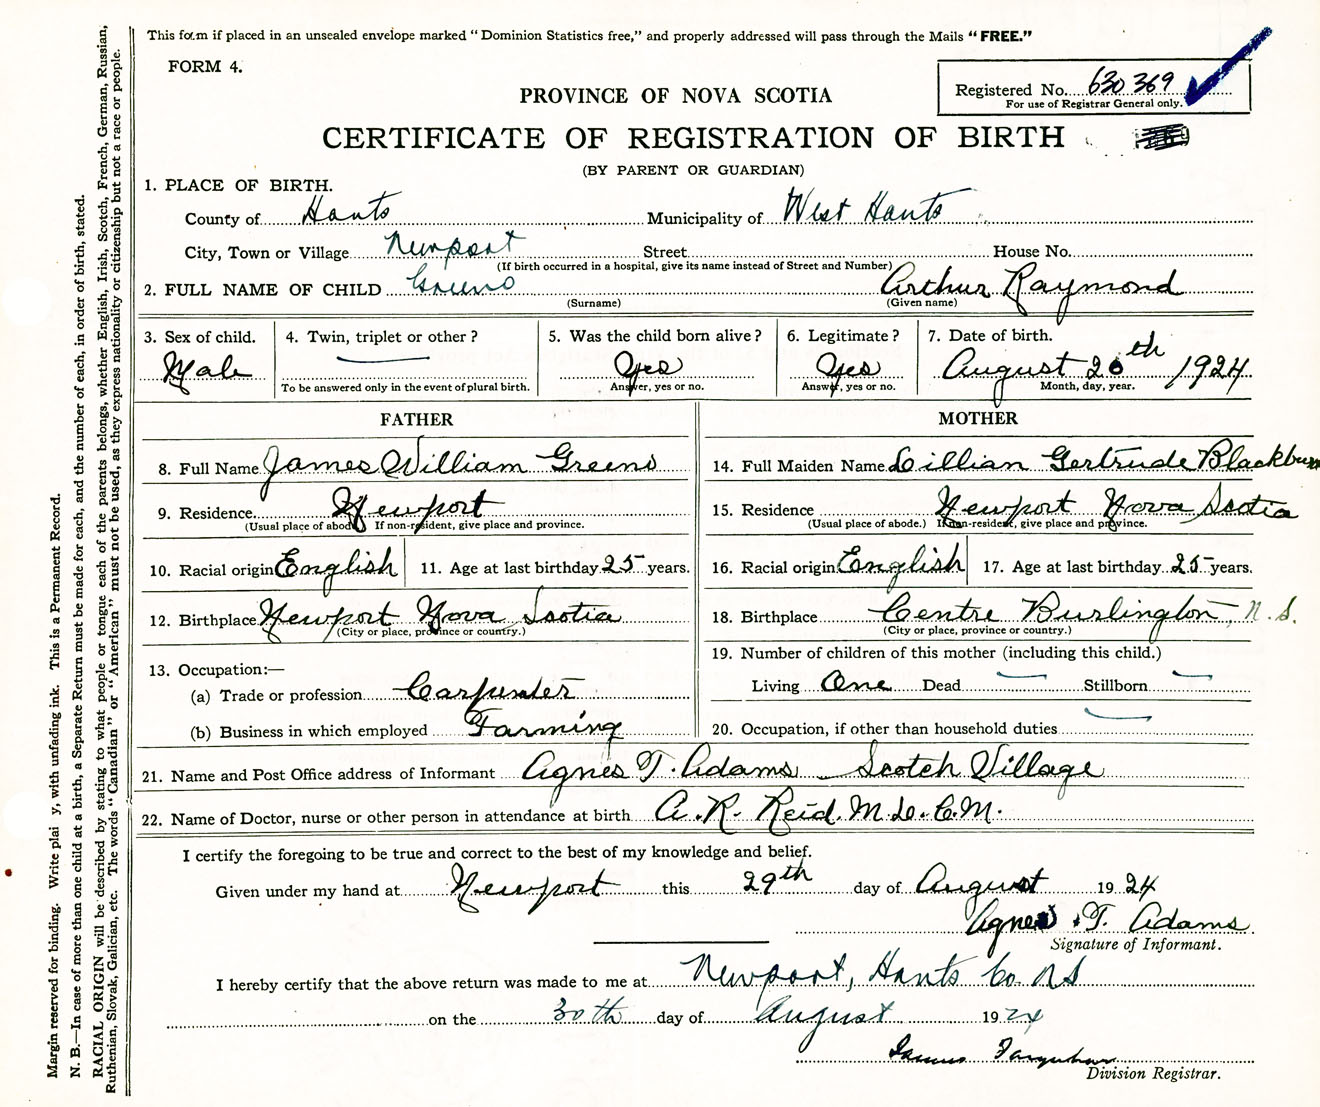 This form if placed in an unsealed envelope marked "Dominion Statistics free," and properly addressed will pass through the Mails "FREE."
FORM 4.
Registered No. 630 369
For use of Registrar General only.
PROVINCE OF NOVA SCOTIA
CERTIFICATE OF REGISTRATION OF BIRTH
(BY PARENT OR GUARDIAN)
1. PLACE OF BIRTH.
County of Hants Municipality of West Hants
City, Town or Village Newport Street House No.
(If birth occurred in a hospital, give its name instead of Street and Number)
2. FULL NAME OF CHILD Greeno Arthur Raymond
(Surname) (Given name)
3. Sex of child. 4. Twin, triplet or other? 5. Was the child born alive? 6. Legitimate? 7. Date of birth.
Male Yes Yes August 20th 1924
To be answered only in the event of plural birth. Answer, yes or no. Answer, yes or no. Month, day, year.
FATHER
8. Full Name James William Greeno
9. Residence. Newport
(Usual place of abode) If non-resident, give place and province.
10. Racial origin English 11. Age at last birthday 25 years.
12. Birthplace Newport Nova Scotia
(City or place, province or country.)
13. Occupation:—
(a) Trade or profession Carpenter
(b) Business in which employed Farming
MOTHER
14. Full Maiden Name Lillian Gertrude Blackburn
15. Residence Newport Nova Scotia
(Usual place of abode.) If non-resident, give place and province.
16. Racial origin English 17. Age at last birthday 25 years.
18. Birthplace Centre Burlington, N.S.
(City or place, province or country.)
19. Number of children of this mother (including this child.)
Living One Dead Stillborn
20. Occupation, if other than household duties
21. Name and Post Office address of Informant Agnes T. Adams Scotch Village
22. Name of Doctor, nurse or other person in attendance at birth A. R. Reid. M.D. C.M.
I certify the foregoing to be true and correct to the best of my knowledge and belief.
Given under my hand at Newport this 29th day of August 1924
Agnes T. Adams
Signature of Informant.
I hereby certify that the above return was made to me at Newport, Hants Co. NS
on the 30th day of August 1924
James Farquhar
Division Registrar.
Margin reserved for binding. Write plai y, with unfading ink. This is a Permanent Record.
N. B.—In case of more than one child at a birth, a Separate Return must be made for each, and the number of each, in order of birth, stated.
RACIAL ORIGIN will be described by stating to what people or tongue each of the parents belongs, whether English, Irish, Scotch, French, German, Russian,
Ruthenian, Slovak, Galician, etc. The words "Canadian" or "American" must not be used, as they express nationality or citizenship but not a race or people.